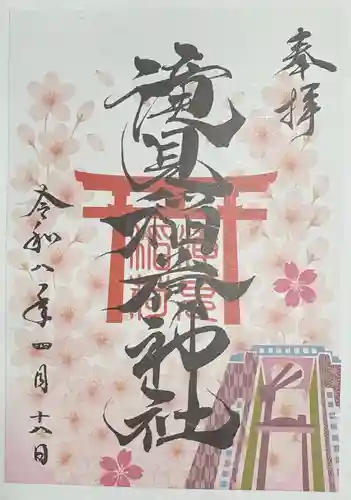 奉拝
滝見稲荷神社
令和八年四月十八日